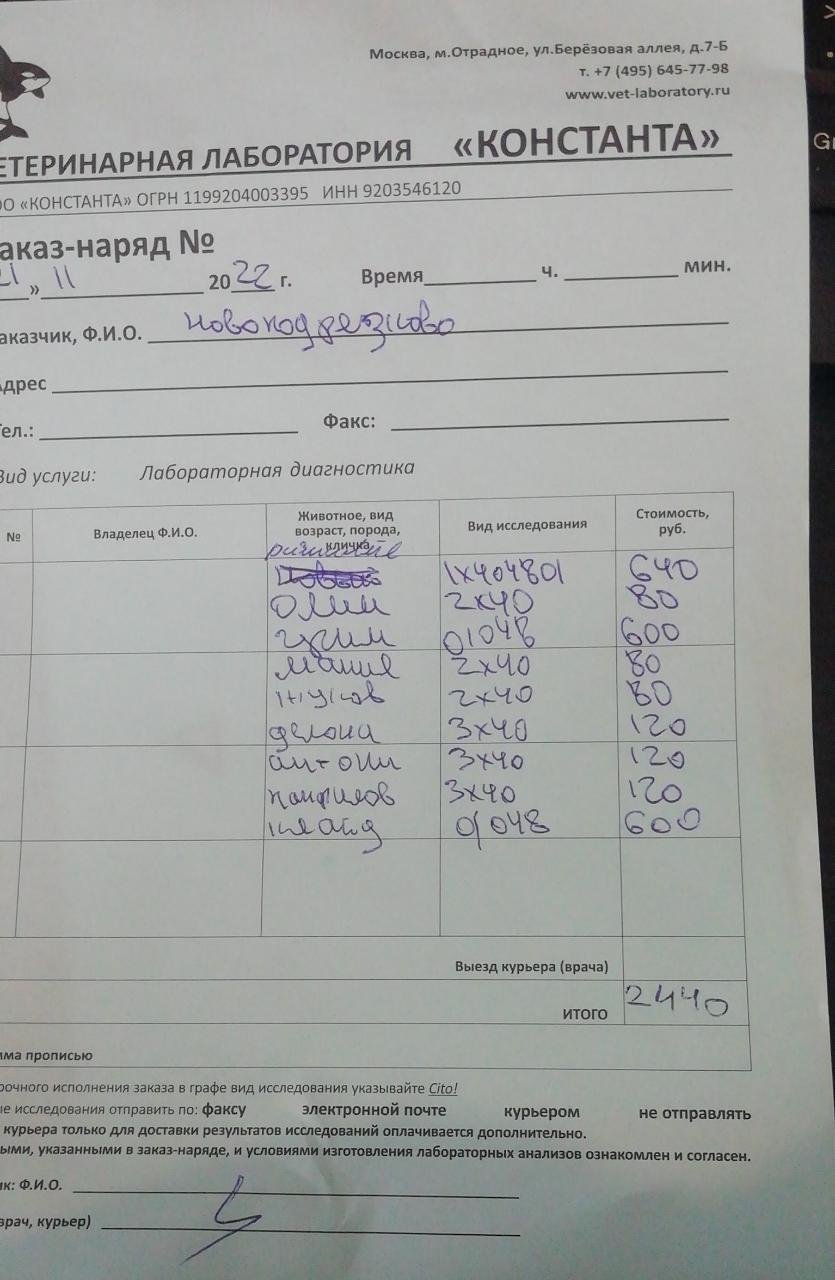 Москва, м.Отрадное, ул.Берёзовая аллея, д.7-Б
т. +7 (495) 645-77-98
www.vet-laboratory.ru
ЕТЕРИНАРНАЯ ЛАБОРАТОРИЯ «КОНСТАНТА»
ОО «КОНСТАНТА» ОГРН 1199204003395 ИНН 9203546120
аказ-наряд №
21 » 11 2022 г. Время ч. мин.
аказчик, Ф.И.О. новоподрезково
Адрес
Тел.: Факс:
Вид услуги: Лабораторная диагностика
№ Владелец Ф.И.О. Животное, вид возраст, порода, кличка Вид исследования Стоимость, руб.
1х404801 640
олии 2х40 80
01048 600
2х40 80
жуков 2х40 80
делона 3х40 120
антони 3х40 120
панфилов 3х40 120
клайд 01048 600
Выезд курьера (врача)
ИТОГО 2440
мма прописью
рочного исполнения заказа в графе вид исследования указывайте Cito!
ые исследования отправить по: факсу электронной почте курьером не отправлять
курьера только для доставки результатов исследований оплачивается дополнительно.
ыми, указанными в заказ-наряде, и условиями изготовления лабораторных анализов ознакомлен и согласен.
ик: Ф.И.О.
врач, курьер)